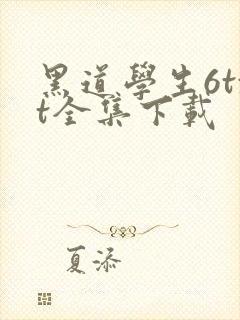 黑道學生6tx
t全集下載
夏添